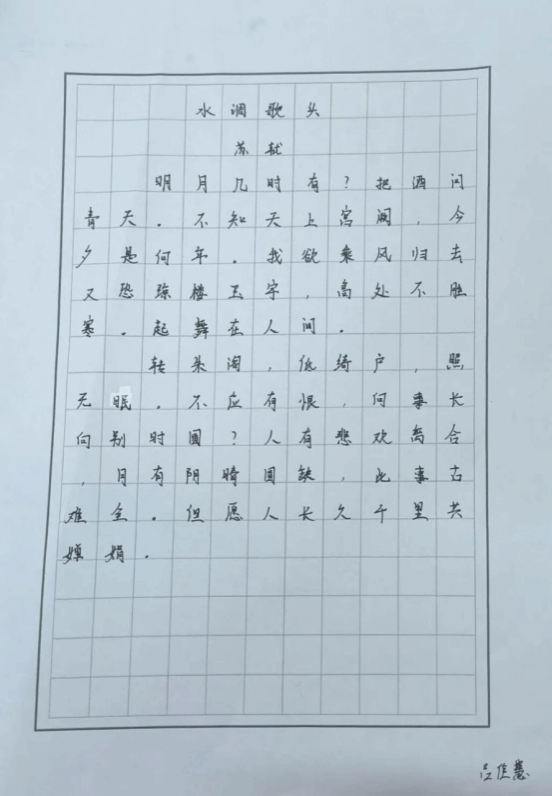 水调歌头
苏轼
明月几时有？把酒问
青天。不知天上宫阙，今
夕是何年。我欲乘风归去
又恐琼楼玉宇，高处不胜
寒。起舞在人间。
转朱阁，低绮户，照
无眠。不应有恨，何事长
向别时圆？人有悲欢离合
，月有阴晴圆缺，此事古
难全。但愿人长久千里共
婵娟。